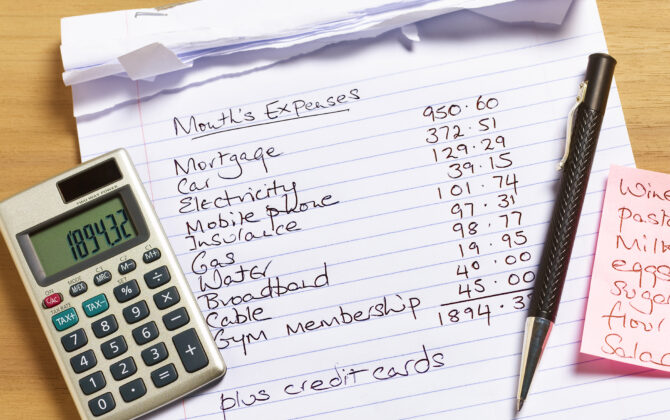 Month's Expenses
Mortgage 950.60
Car 372.51
Electricity 129.29
Mobile phone 39.15
Insurance 101.74
Gas 97.31
Water 98.77
Broadband 19.95
Cable 40.00
Gym Membership 45.00
1894.3
plus credit cards
TWO WAY POWER
1894.32
ON MODE C-1 C-1
C/AC M/EX MRC M- M+
TAX+ TAX- % ÷
7 8 9 ×
4 5 6 −
1 2 3 +
0 00 .
Wine
pasta
Milk
eggs
sugar
flour
Salad